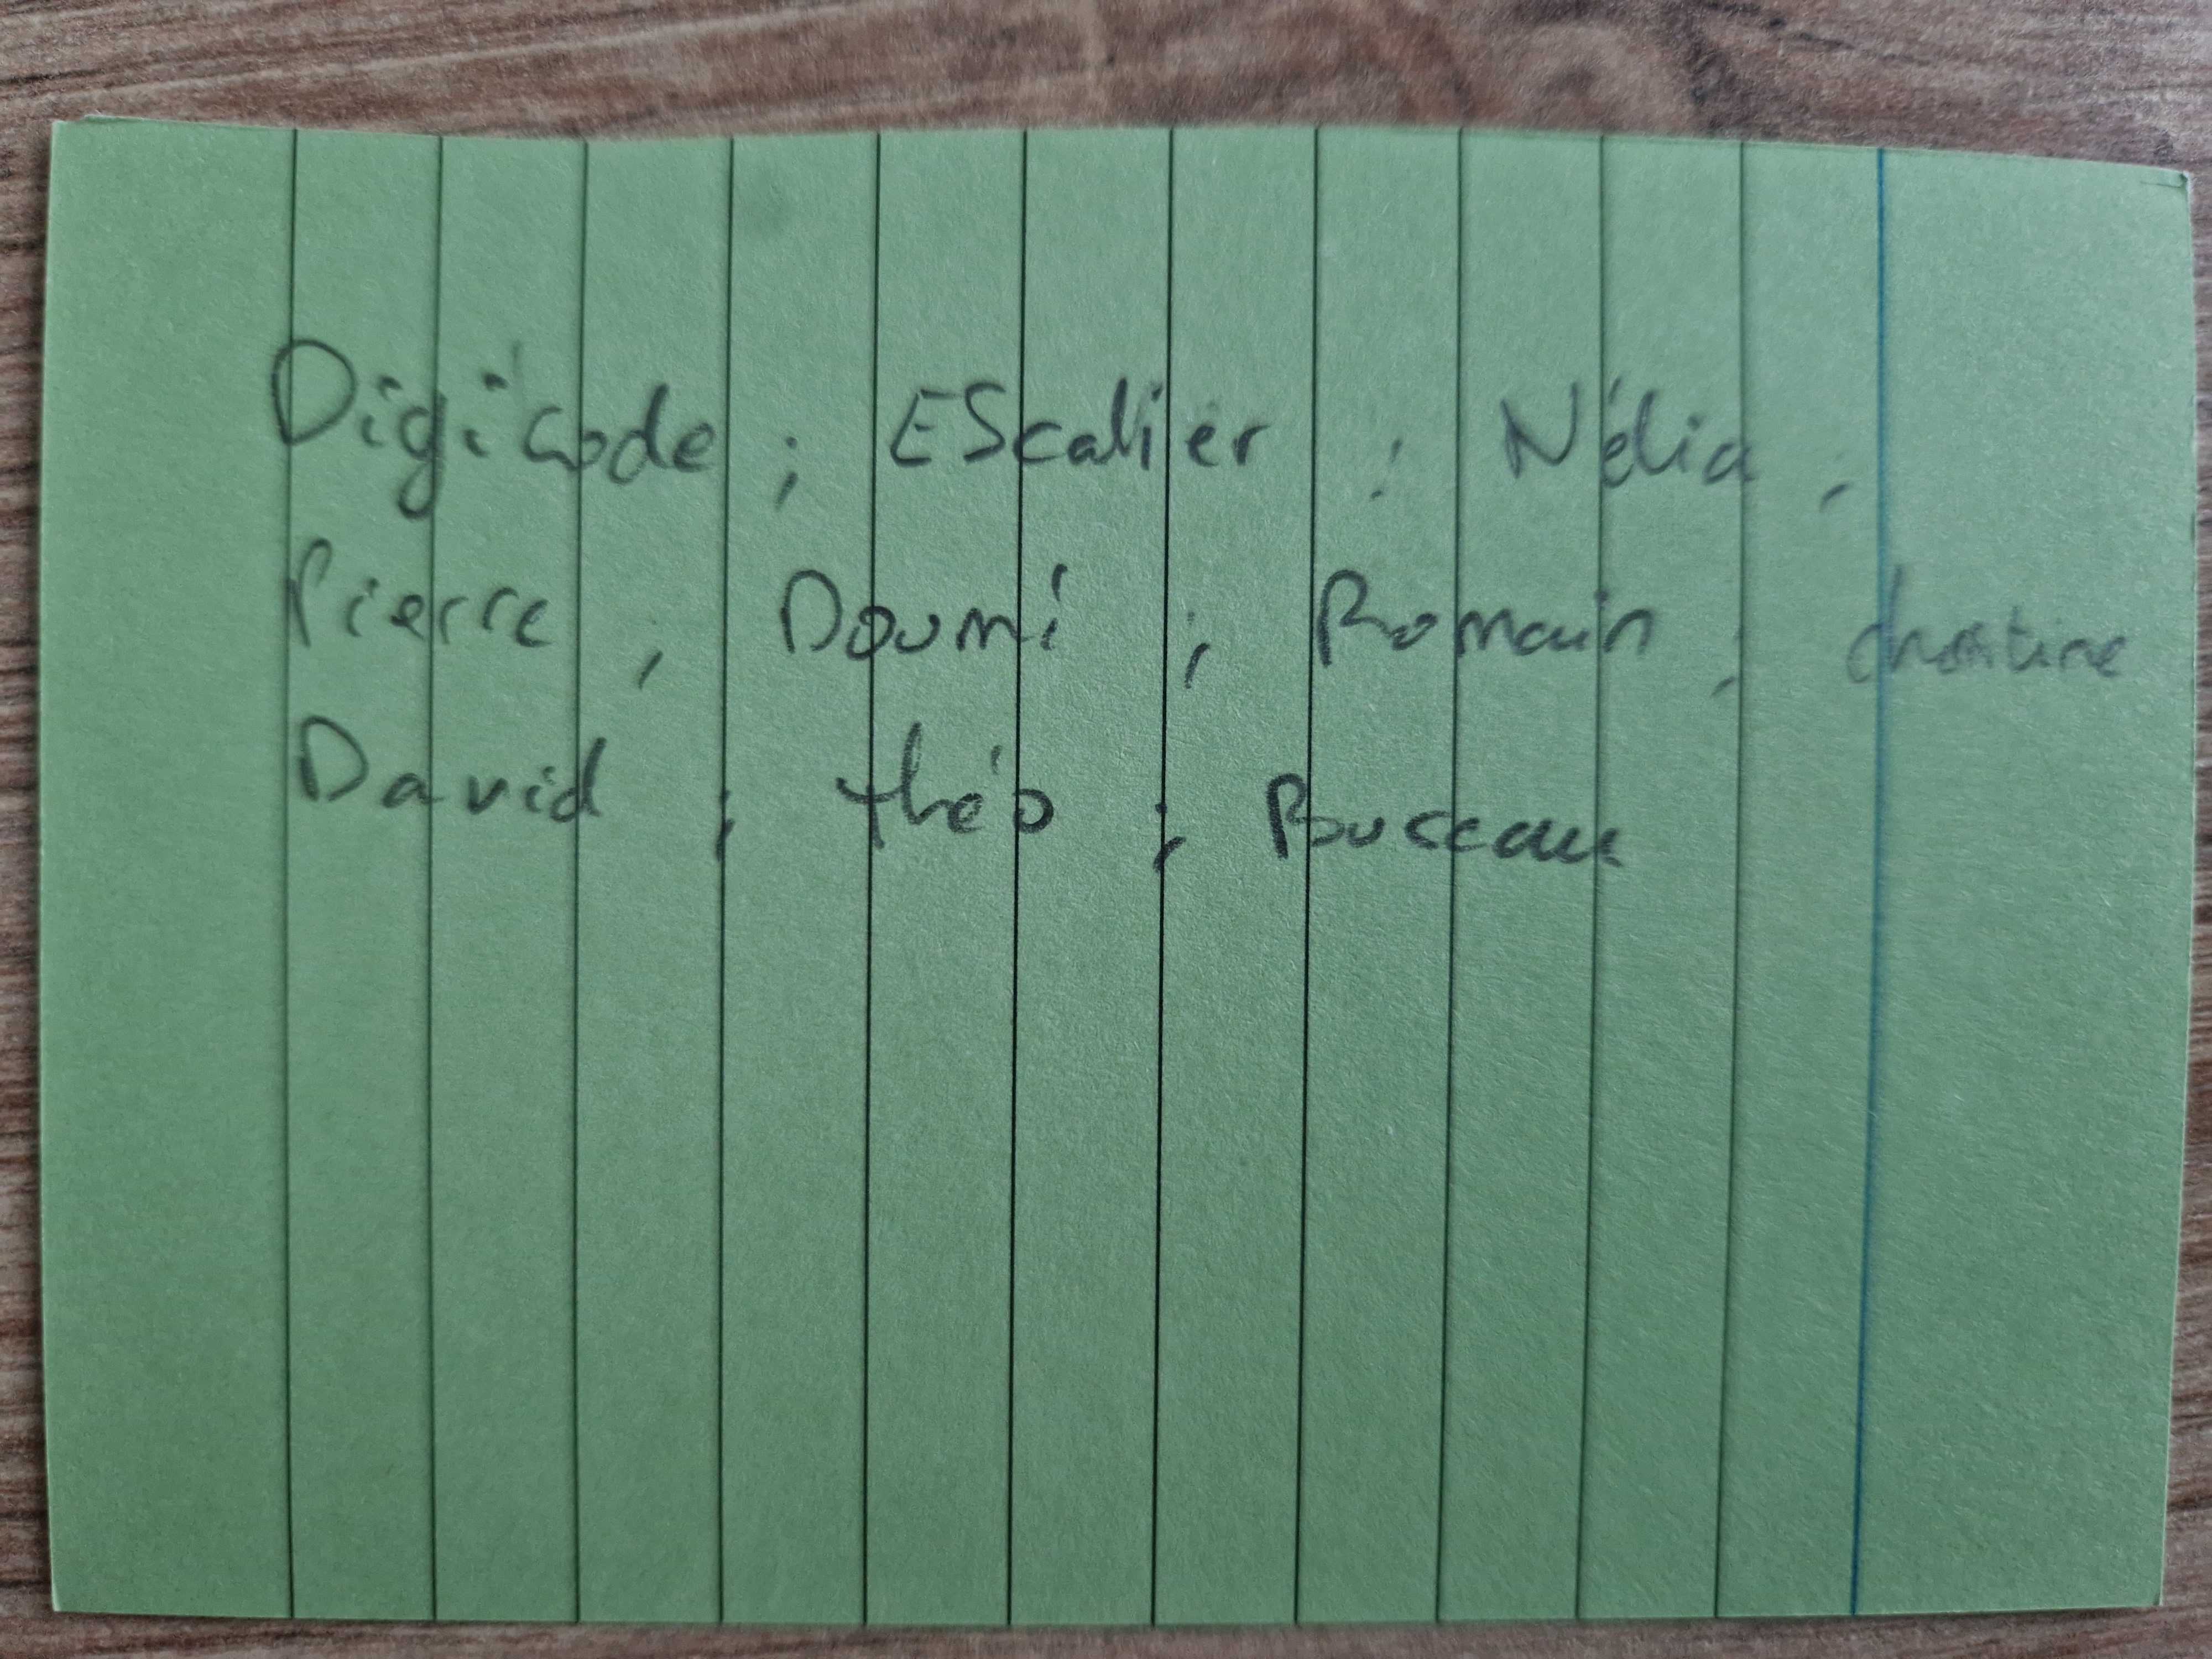 Digicode ; EScalier ; Nélia ;
Pierre , Doumi ; Romain ; christine
David ; théo ; Bureau